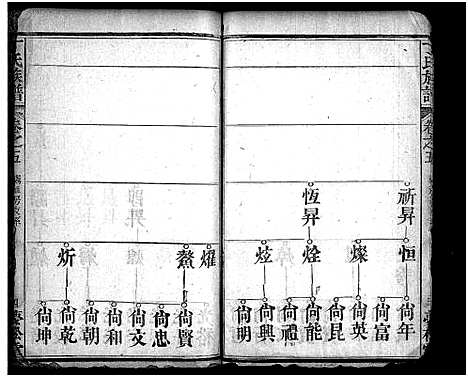 氏族譜
卷之五
祈昇
恆昇
恒
燦
烇
炫
燿
鰲
炘
尙年
尙富
尙英
尙昆
尙能
尙禮
尙興
尙明
尙賢
尙忠
尙文
尙和
尙朝
尙乾
尙坤
氏族譜
卷之五